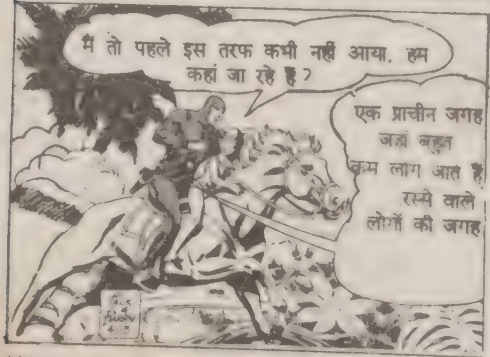 मैं तो पहले इस तरफ कभी नहीं आया. हम
कहां जा रहे हैं ?
एक प्राचीन जगह
जहां बहुत
कम लोग जाते हैं
रस्से वाले
लोगों की जगह